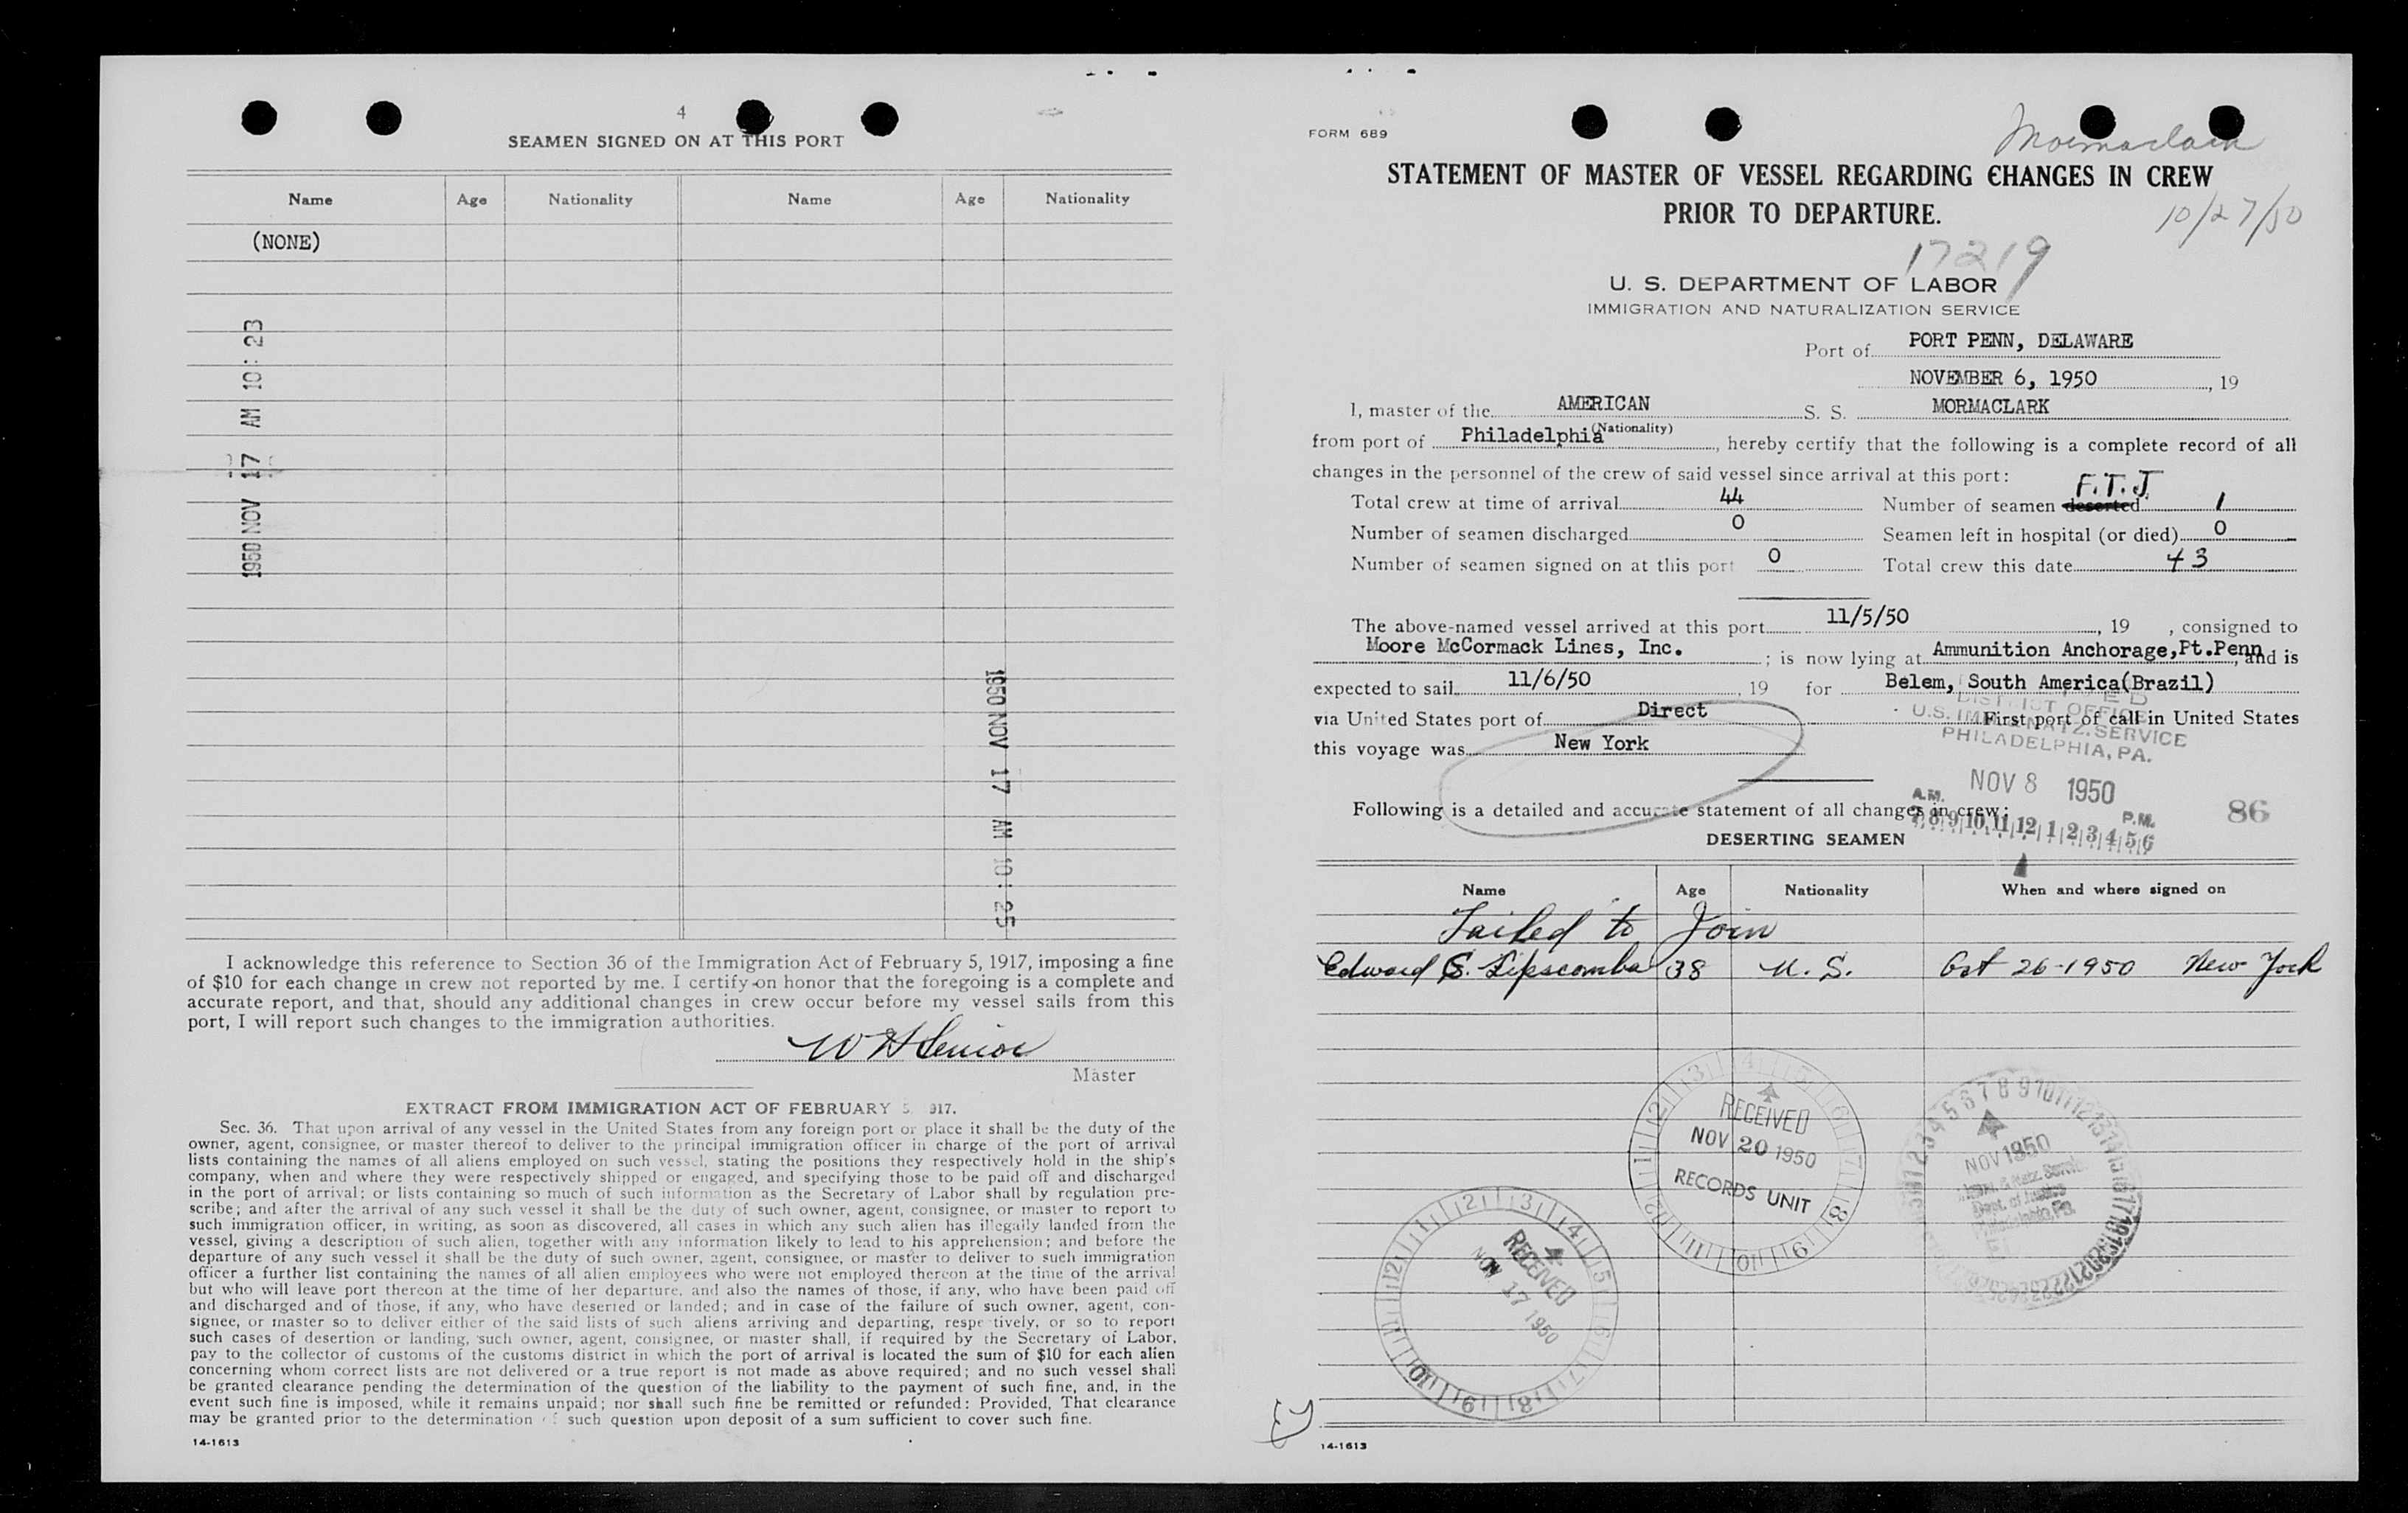 4
SEAMEN SIGNED ON AT THIS PORT
Name Age Nationality Name Age Nationality
(NONE)
1950 NOV 17 AM 10:23
1950 NOV 17 AM 10:25
I acknowledge this reference to Section 36 of the Immigration Act of February 5, 1917, imposing a fine
of $10 for each change in crew not reported by me. I certify on honor that the foregoing is a complete and
accurate report, and that, should any additional changes in crew occur before my vessel sails from this
port, I will report such changes to the immigration authorities.
W H Senior
Master
EXTRACT FROM IMMIGRATION ACT OF FEBRUARY 5, 917.
Sec. 36. That upon arrival of any vessel in the United States from any foreign port or place it shall be the duty of the
owner, agent, consignee, or master thereof to deliver to the principal immigration officer in charge of the port of arrival
lists containing the names of all aliens employed on such vessel, stating the positions they respectively hold in the ship's
company, when and where they were respectively shipped or engaged, and specifying those to be paid off and discharged
in the port of arrival; or lists containing so much of such information as the Secretary of Labor shall by regulation pre-
scribe; and after the arrival of any such vessel it shall be the duty of such owner, agent, consignee, or master to report to
such immigration officer, in writing, as soon as discovered, all cases in which any such alien has illegally landed from the
vessel, giving a description of such alien, together with any information likely to lead to his apprehension; and before the
departure of any such vessel it shall be the duty of such owner, agent, consignee, or master to deliver to such immigration
officer a further list containing the names of all alien employees who were not employed thereon at the time of the arrival
but who will leave port thereon at the time of her departure, and also the names of those, if any, who have been paid off
and discharged and of those, if any, who have deserted or landed; and in case of the failure of such owner, agent, con-
signee, or master so to deliver either of the said lists of such aliens arriving and departing, respe tively, or so to report
such cases of desertion or landing, such owner, agent, consignee, or master shall, if required by the Secretary of Labor,
pay to the collector of customs of the customs district in which the port of arrival is located the sum of $10 for each alien
concerning whom correct lists are not delivered or a true report is not made as above required; and no such vessel shall
be granted clearance pending the determination of the question of the liability to the payment of such fine, and, in the
event such fine is imposed, while it remains unpaid; nor shall such fine be remitted or refunded: Provided, That clearance
may be granted prior to the determination of such question upon deposit of a sum sufficient to cover such fine.
14-1613
FORM 689
Mormaclark
STATEMENT OF MASTER OF VESSEL REGARDING CHANGES IN CREW
PRIOR TO DEPARTURE.
10/27/50
17219
U. S. DEPARTMENT OF LABOR
IMMIGRATION AND NATURALIZATION SERVICE
Port of PORT PENN, DELAWARE
NOVEMBER 6, 1950, 19
I, master of the AMERICAN S. S. MORMACLARK
(Nationality)
from port of Philadelphia, hereby certify that the following is a complete record of all
changes in the personnel of the crew of said vessel since arrival at this port:
F.T.J.
Total crew at time of arrival 44 Number of seamen deserted 1
Number of seamen discharged 0 Seamen left in hospital (or died) 0
Number of seamen signed on at this port 0 Total crew this date 43
The above-named vessel arrived at this port 11/5/50, 19 , consigned to
Moore McCormack Lines, Inc. ; is now lying at Ammunition Anchorage,Pt.Penn, and is
expected to sail 11/6/50, 19 for Belem, South America(Brazil)
via United States port of Direct First port of call in United States
this voyage was New York
DISTRICT OFFICE
U.S. IMM. NATZ. SERVICE
PHILADELPHIA, PA.
NOV 8 1950
A.M. P.M.
7 8 9 10 11 12 1 2 3 4 5 6
86
Following is a detailed and accurate statement of all changes in crew:
DESERTING SEAMEN
Name Age Nationality When and where signed on
Failed to Join
Edward S. Lipscomba 38 U. S. Oct 26-1950 New York
RECEIVED
NOV 20 1950
RECORDS UNIT
RECEIVED
NOV 17 1950
NOV 1950
14-1613